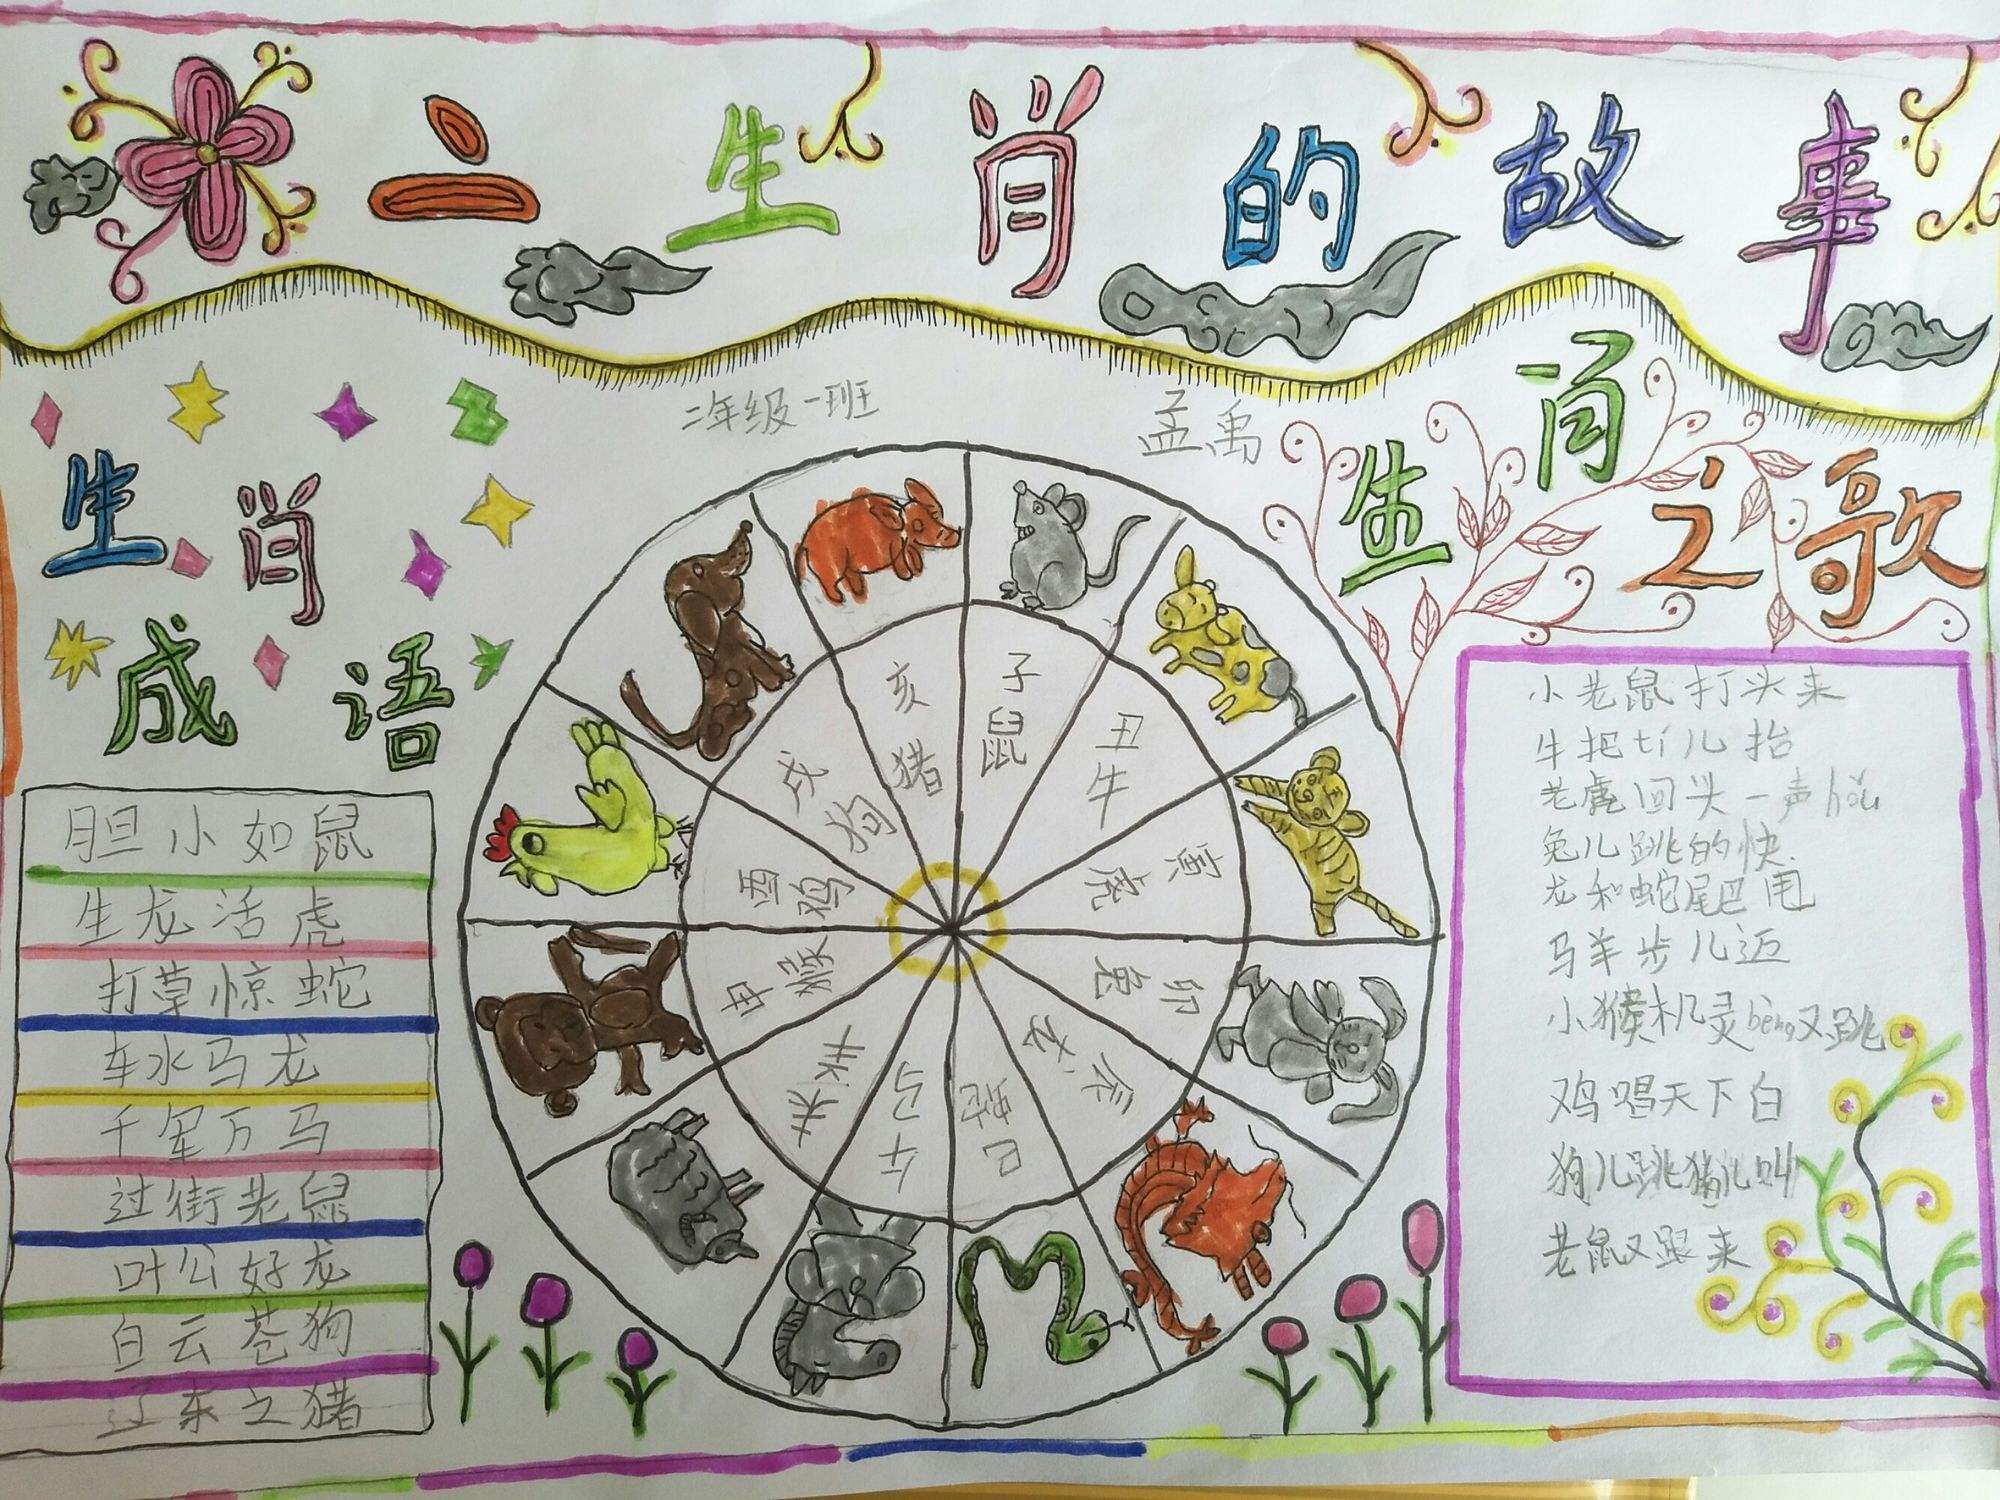 十二生肖的故事
二年级一班
孟禹
生肖成语
胆小如鼠
生龙活虎
打草惊蛇
车水马龙
千军万马
过街老鼠
叶公好龙
白云苍狗
辽东之猪
子鼠
丑牛
寅虎
卯兔
辰龙
巳蛇
午马
未羊
申猴
酉鸡
戌狗
亥猪
生肖之歌
小老鼠打头来
牛把tí儿抬
老虎回头一声hǒu
兔儿跳的快
龙和蛇尾巴甩
马羊步儿迈
小猴机灵bèng又跳
鸡唱天下白
狗儿跳猪儿叫
老鼠又跟来